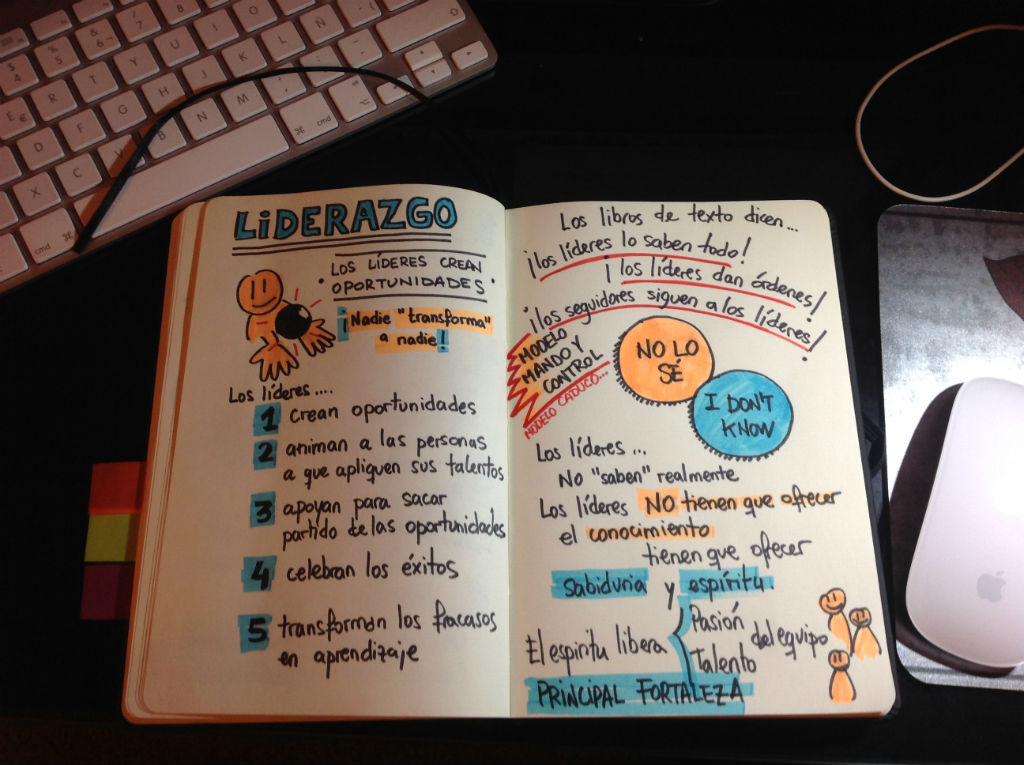 LIDERAZGO
LOS LÍDERES CREAN
OPORTUNIDADES
¡Nadie "transforma"
a nadie!
Los líderes....
1 crean oportunidades
2 animan a las personas
a que apliquen sus talentos
3 apoyan para sacar
partido de las oportunidades
4 celebran los éxitos
5 transforman los fracasos
en aprendizaje
Los libros de texto dicen...
¡los líderes lo saben todo!
¡los líderes dan órdenes!
¡los seguidores siguen a los líderes!
MODELO
MANDO Y
CONTROL
MODELO CADUCO...
NO LO
SÉ
I DON'T
KNOW
Los líderes...
No "saben" realmente
Los líderes NO tienen que ofrecer
el conocimiento
tienen que ofrecer
sabiduria y espíritu
El espiritu libera
Pasión
Talento
del equipo
PRINCIPAL FORTALEZA